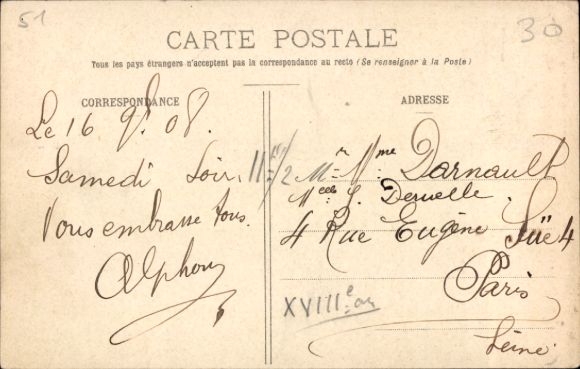 51
30
CARTE POSTALE
Tous les pays étrangers n'acceptent pas la correspondance au recto (Se renseigner à la Poste)
CORRESPONDANCE
ADRESSE
Le 16 9bre 08.
Samedi Soir, 11h 1/2
Vous embrasse tous.
Alphonse
Mr Mme Darnault
Melle J. Deruelle.
4 Rue Eugène Süe 4
Paris
XVIIIe arr
Seine.